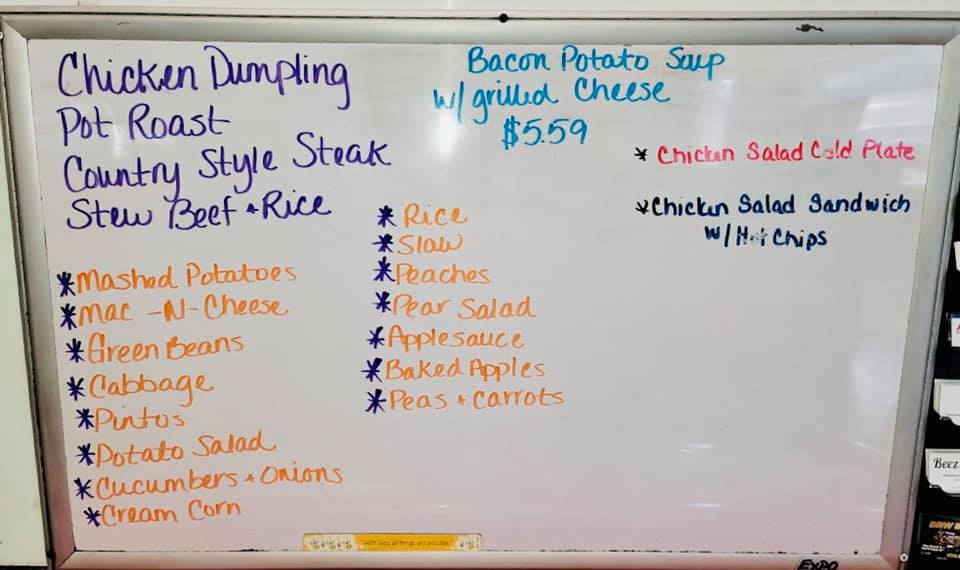 Chicken Dumpling
Pot Roast
Country Style Steak
Stew Beef + Rice
* Mashed Potatoes
* Mac -N- Cheese
* Green Beans
* Cabbage
* Pintos
* Potato Salad
* Cucumbers + Onions
* Cream Corn
* Rice
* Slaw
* Peaches
* Pear Salad
* Applesauce
* Baked Apples
* Peas + Carrots
Bacon Potato Soup
w/ grilled Cheese
$5.59
* Chicken Salad Cold Plate
* Chicken Salad Sandwich
w/ Hot Chips
"With God all things are possible."
EXPO
Beez